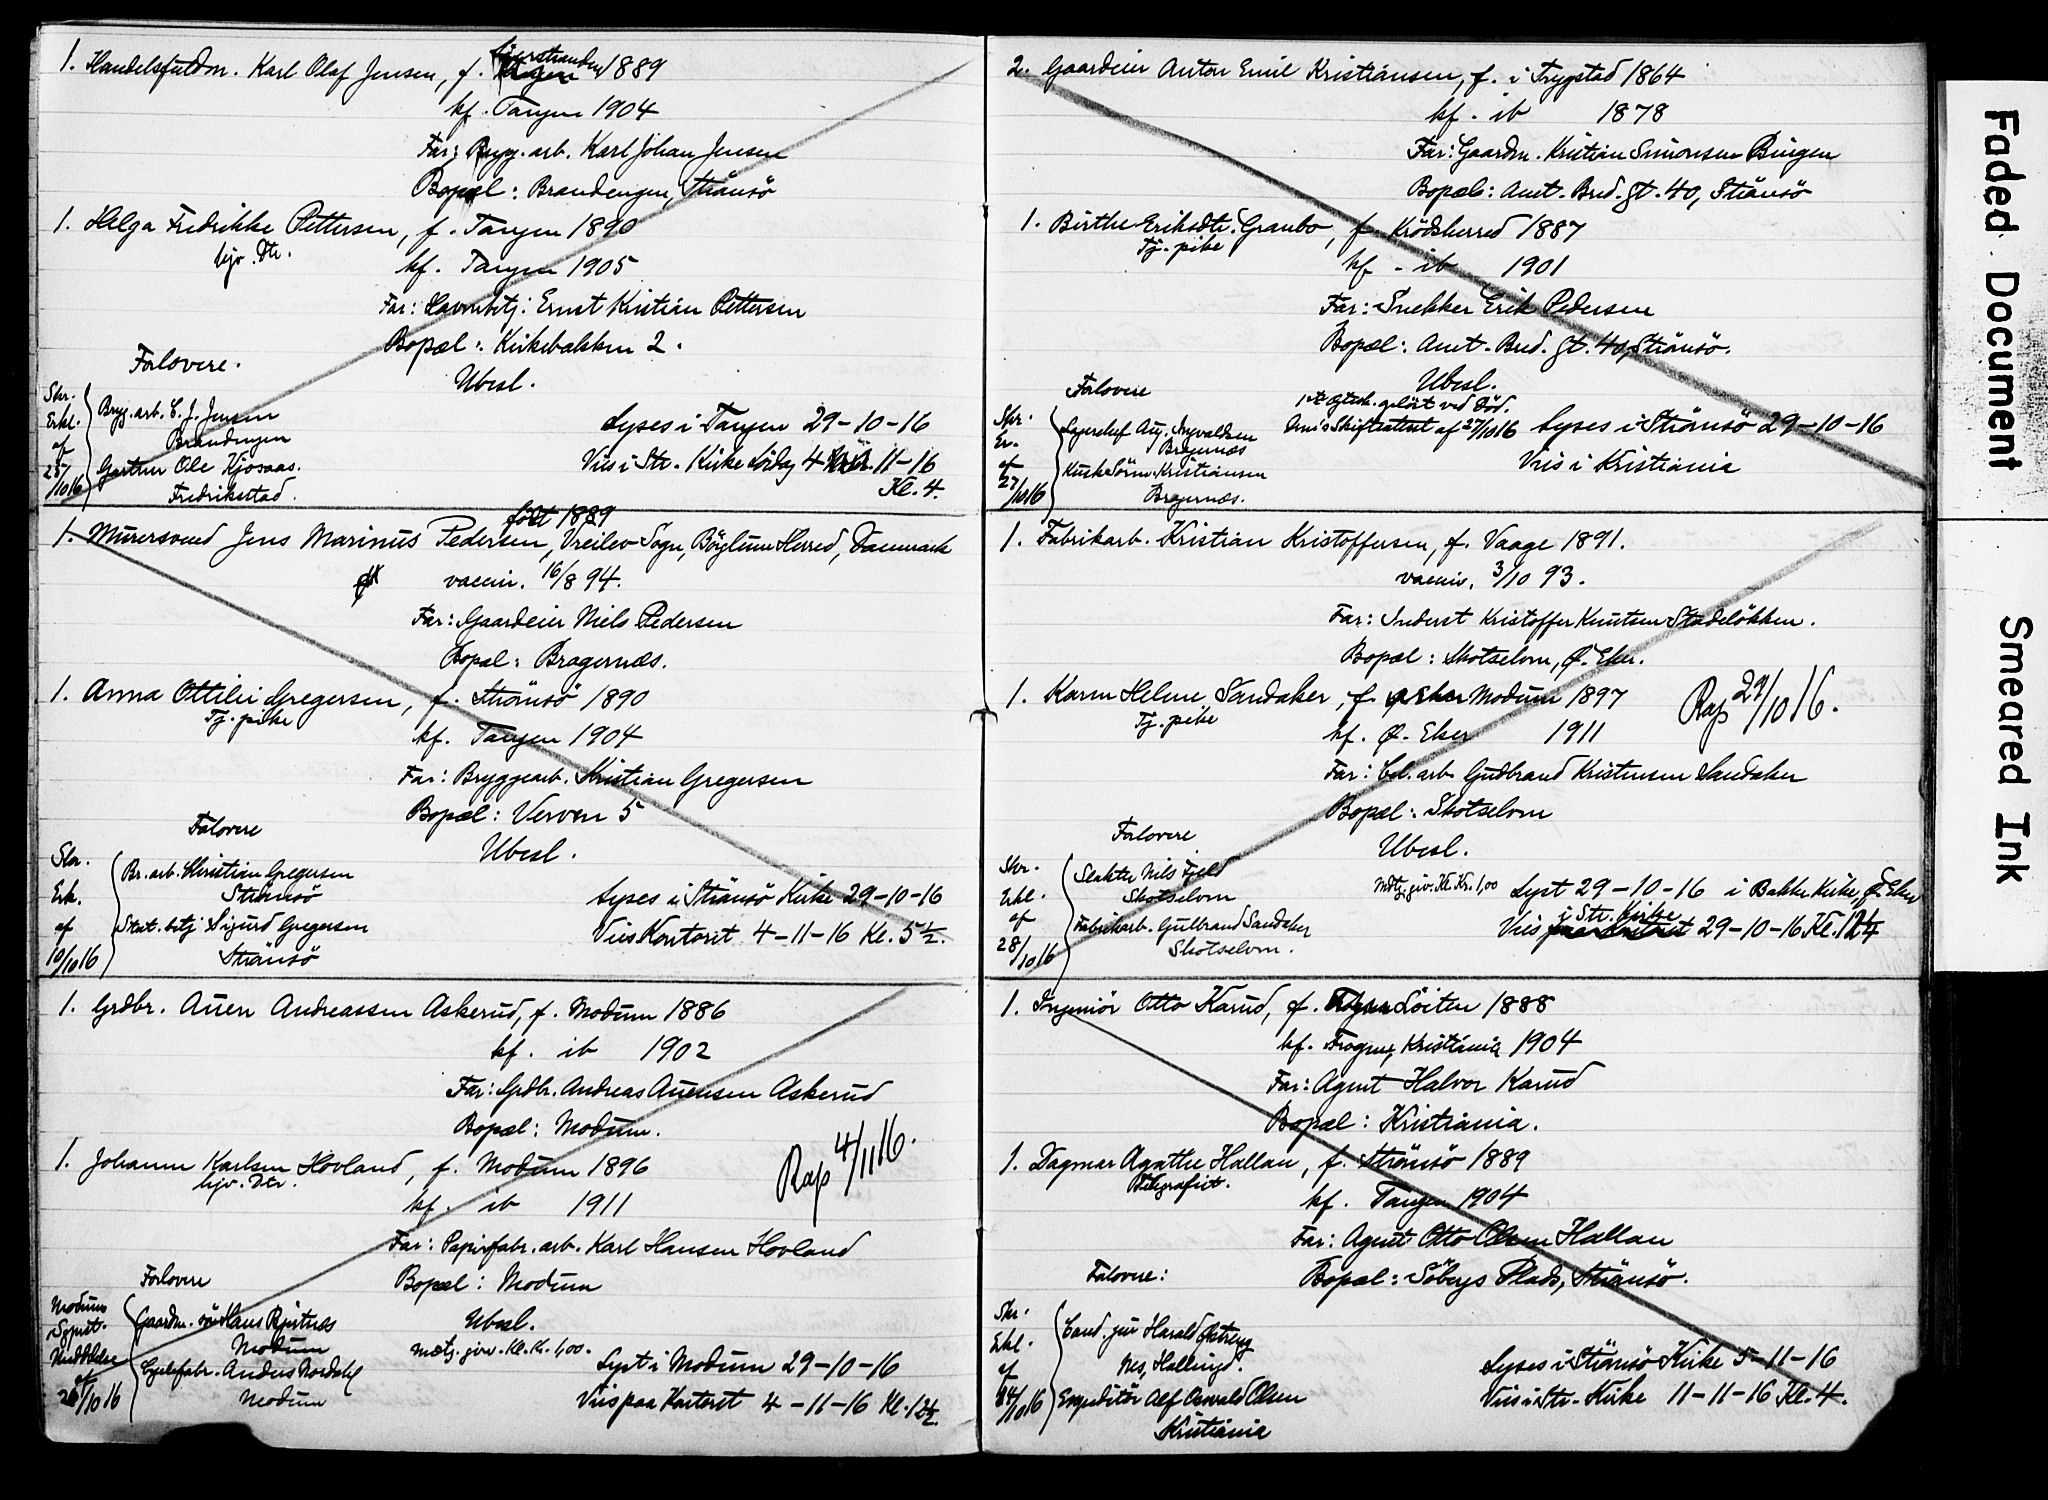 1. Handelsfuldm. Karl Olaf Jensen, f. 1889
kf. Tangen 1904
Far: Bryg. arb. Karl Johan Jensen
Bopæl: Brandengen, Strömsö
1. Helga Fredrikke Pettersen, f. Tangen 1890
hjv. Dtr.
kf. Tangen 1905
Far: Havnebetj: Ernst Kristian Pettersen
Bopæl: Kirkebakken 2.
Forlovere.
Ubesl.
Skr.
Erkl.
af
25/10 16
Bryg. arb. C. J. Jensen
Brandengen
Gartner Ole Kjosaas.
Fredrikstad.
Lyses i Tangen 29-10-16
Vies i Str. Kirke Lördag 4-11-16
Kl. 4.
födt 1889
1. Murersvend Jens Marinus Pedersen, Vreilev Sogn, Börglum Herred, Danmark
vaccin. 16/8 94.
Far: Gaardeier Niels Pedersen
Bopæl: Bragernæs.
1. Anna Ottilie Gregersen, f. Strömsö 1890
Tj. pike
kf. Tangen 1904
Far: Bryggearb. Kristian Gregersen
Bopæl: Verven 5
Forlovere
Ubesl.
Skr.
Erk.
af
10/10 16
Br. arb. Kristian Gregersen
Strömsö
Stat. betj Sigurd Gregersen
Strömsö
Lyses i Strömsö Kirke 29-10-16
Vies Kontoret 4-11-16 Kl. 5½.
1. Grdbr. Auen Andreassen Askerud, f. Modum 1886
kf. ib 1902
Far: Grdbr. Andreas Auensen Askerud
Bopæl: Modum.
1. Johanne Karlsen Hovland, f. Modum 1896
hjv. Dtr.
kf. ib 1911
Rap 4/11 16.
Far: Papirfabr. arb. Karl Hansen Hovland
Forlovere
Bopæl: Modum
Ubesl.
Modum
Sognepr.
Meddelelse
af
/10 16
Gaardm. Hans
Modum
Anders Rosdahl
Modum
mætj. giv. Kl. Kr. 1,00.
Lyst i Modum 29-10-16
Vies paa Kontoret 4-11-16 Kl. 12½.
2. Gaardeier Anton Emil Kristiansen, f. i Trygstad 1864
kf. ib 1878
Far: Gaardm. Kristian Simonsen Bingen
Bopæl: Amt. Bred. gt. 40, Strömsö
1. Birthe Eriksdtr. Graubo, f. Krödsherred 1887
Tj. pike
kf - ib 1901
Far: Snekker Erik Pedersen
Bopæl: Amt. Bred. gt. 40, Strömsö.
Forlovere
Ubesl.
1ste Ægtesk. oplöst ved Död.
Skr.
Er.
af
27/10 16
Lagerchef Aug. Ingvaldsen
Bragernæs
Kusk Sörn Kristiansen
Bragernæs.
Omis Skifteattest af 27/10 16
Lyses i Strömsö 29-10-16
Vies i Kristiania
1. Fabrikarb. Kristian Kristoffersen, f. Vaage 1891.
vaccin. 3/10 93.
Far: Inderst Kristoffer Knutsen Stadelökken.
Bopæl: Skotselven, Ø. Eker.
1. Karen Helene Sandaker, f. Modum 1897
Tj. pike
Rap 29/10 16.
kf. Ø. Eker 1911
Far: Cel. arb. Gudbrand Kristensen Sandaker
Bopæl: Skotselven
Forlovere
Ubesl.
Skr.
Erkl.
af
28/10 16
Slakter Nils Fjeld
Skotselven
Fabrikarb. Gulbrand Sandaker
Skotselven.
mætj. giv. Kl. Kr. 1,00
Lyst 29-10-16 i Bakke Kirke, Ø. Eker
i Str. Kirke
Vies 29-10-16 Kl. 12¼
1. Ingeniör Otto Karud, f. Löiten 1888
kf. Frogner, Kristiania 1904
Far: Agent Halvor Karud
Bopæl: Kristiania.
1. Dagmar Agathe Hallan, f. Strömsö 1889
Telegrafist.
kf. Tangen 1904
Far: Agent Otto Olsen Hallan
Forlovere:
Bopæl: Söbergs Plads, Strömsö.
Skr.
Erkl.
af
24/10 16
Cand. jur Harald Østreng
Nes, Hallingd.
Expeditör Alf Oswald Olsen
Kristiania
Lyses i Strömsö Kirke 5-11-16
Vies i Str. Kirke 11-11-16 Kl. 4.
Faded Document
Smeared Ink